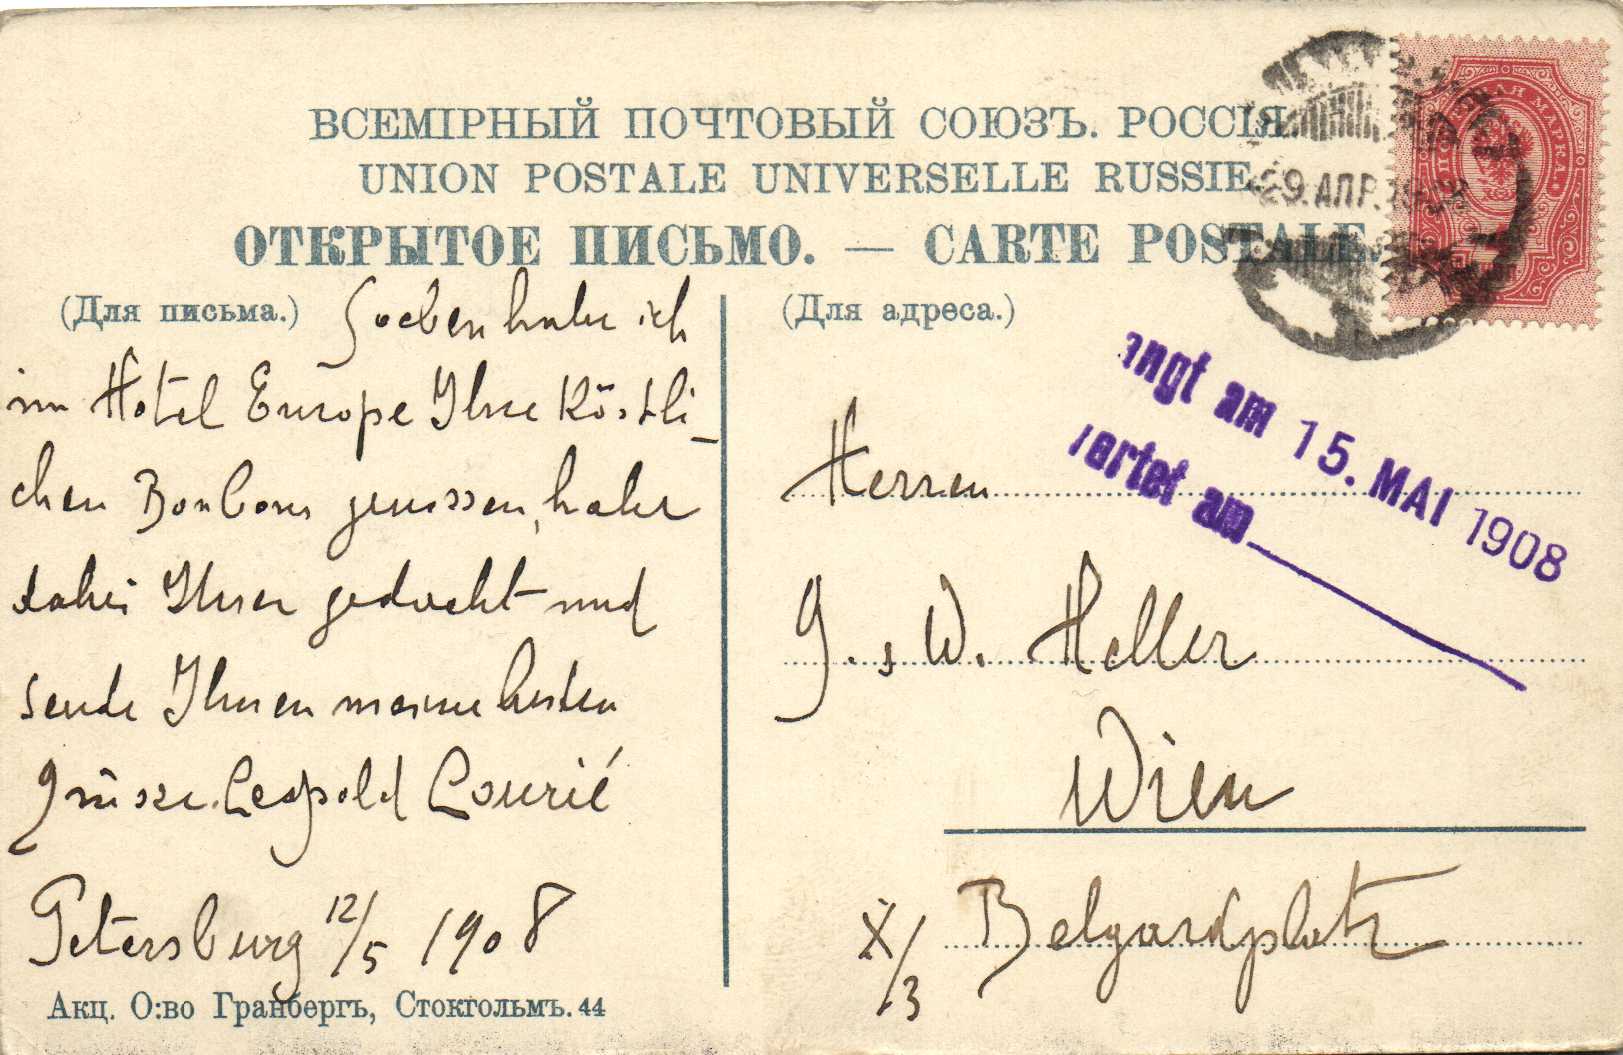 ВСЕМІРНЫЙ ПОЧТОВЫЙ СОЮЗЪ. РОССІЯ
UNION POSTALE UNIVERSELLE RUSSIE
ОТКРЫТОЕ ПИСЬМО. — CARTE POSTALE.
29. АПР. 1908
(Для письма.)
Soeben habe ich
im Hotel Europe Ihre Köstli-
chen Bonbons genossen, habe
dabei Ihrer gedacht und
sende Ihnen meine besten
Grüsse. Leopold Lourié
Petersburg 12/5 1908
Акц. О:во Гранбергъ, Стокгольмъ. 44
(Для адреса.)
angt am 15. MAI 1908
ortet am
Herren
G. & W. Heller
Wien
X/3 Belgardplatz